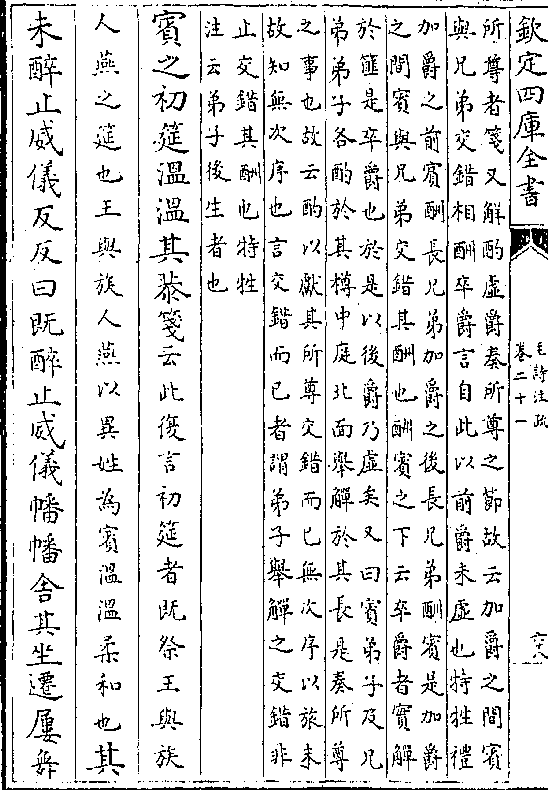 欽定四庫全書
毛詩注疏
卷二十一
六十八
所尊者箋又解酌虚爵奏所尊之節故云加爵之間賓
與兄弟交錯相酬卒爵言自此以前爵未虚也特牲禮
加爵之前賓酬長兄弟加爵之後長兄弟酬賓是加爵
之間賓與兄弟交錯其酬也酬賓之下云卒爵者實觶
於篚是卒爵也於是以後爵乃虚矣又曰賓弟子及兄
弟弟子各酌於其樽中庭北面舉觶於其長是奏所尊
之事也故云酌以獻其所尊交錯而已無次序以旅未
故知無次序也言交錯而已者謂弟子舉觶之交錯非
止交錯其酬也特牲
注云弟子後生者也
賓之初筵溫溫其恭箋云此復言初筵者既祭王與族
人燕之筵也王與族人燕以異姓為賓溫溫柔和也其
未醉止威儀反反曰既醉止威儀幡幡舍其坐遷屢舞